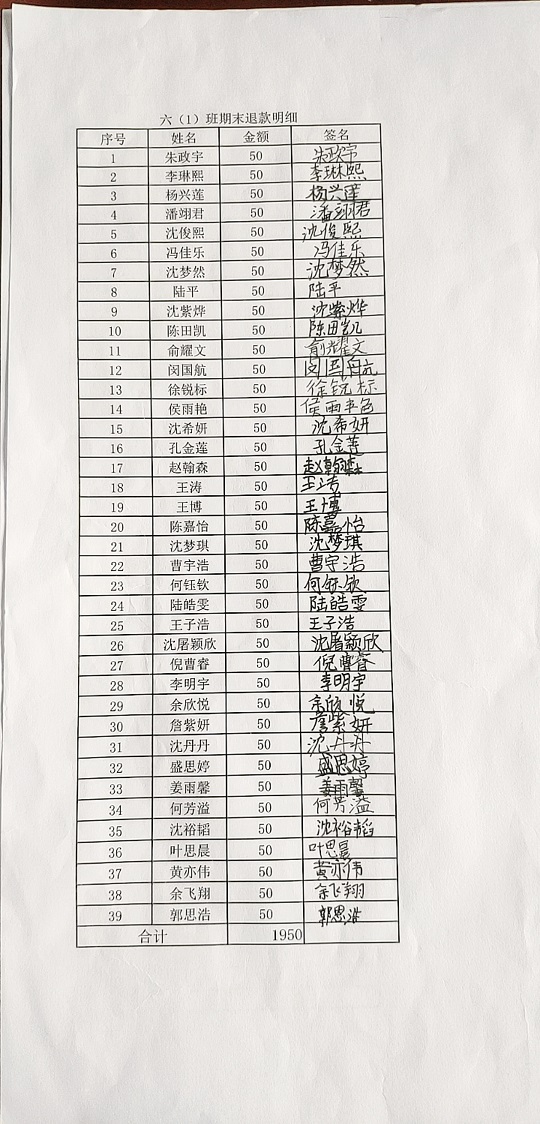 六（1）班期末退款明细
序号 姓名 金额 签名
1 朱政宇 50 朱政宇
2 李琳熙 50 李琳熙
3 杨兴莲 50 杨兴莲
4 潘翊君 50 潘翊君
5 沈俊熙 50 沈俊熙
6 冯佳乐 50 冯佳乐
7 沈梦然 50 沈梦然
8 陆平 50 陆平
9 沈紫烨 50 沈紫烨
10 陈田凯 50 陈田凯
11 俞耀文 50 俞耀文
12 闵国航 50 闵国航
13 徐锐标 50 徐锐标
14 侯雨艳 50 侯雨艳
15 沈希妍 50 沈希妍
16 孔金莲 50 孔金莲
17 赵翰森 50 赵翰森
18 王涛 50 王涛
19 王博 50 王博
20 陈嘉怡 50 陈嘉怡
21 沈梦琪 50 沈梦琪
22 曹宇浩 50 曹宇浩
23 何钰钦 50 何钰钦
24 陆皓雯 50 陆皓雯
25 王子浩 50 王子浩
26 沈屠颖欣 50 沈屠颖欣
27 倪曹睿 50 倪曹睿
28 李明宇 50 李明宇
29 余欣悦 50 余欣悦
30 詹紫妍 50 詹紫妍
31 沈丹丹 50 沈丹丹
32 盛思婷 50 盛思婷
33 姜雨馨 50 姜雨馨
34 何芳溢 50 何芳溢
35 沈裕韬 50 沈裕韬
36 叶思晨 50 叶思晨
37 黄亦伟 50 黄亦伟
38 余飞翔 50 余飞翔
39 郭思浩 50 郭思浩
合计 1950